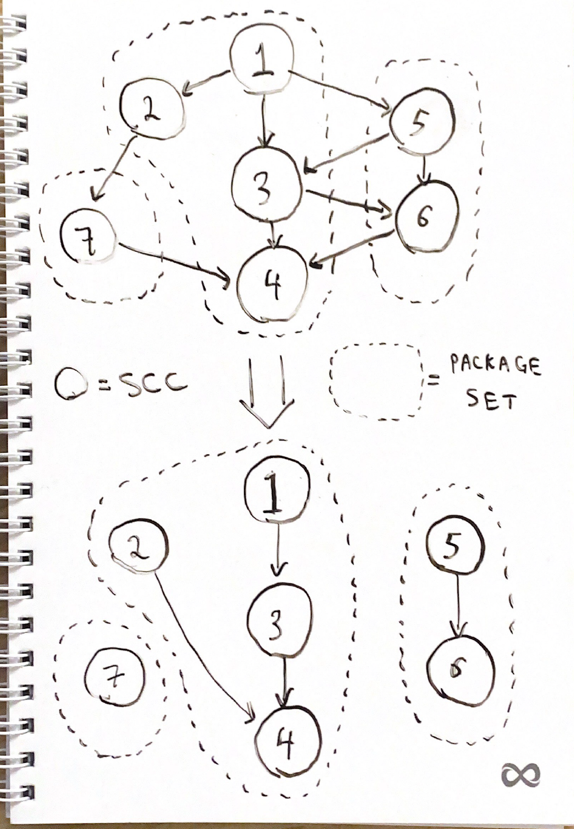 1
2
5
3
6
7
4
= SCC
= PACKAGE
SET
1
2
5
3
6
7
4